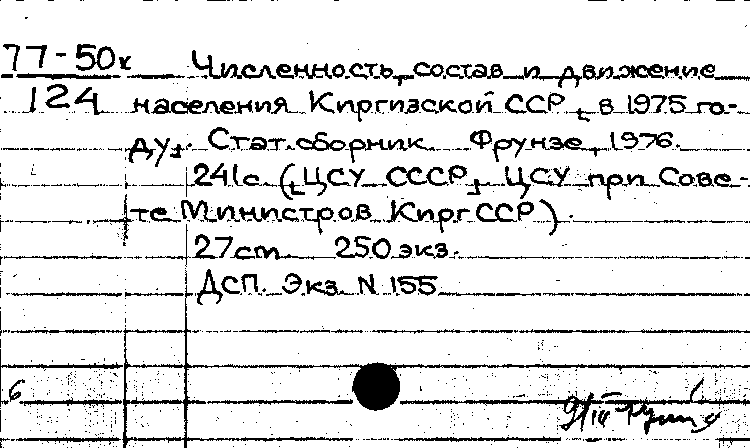 77-50к Численность, состав и движение
124 населения Киргизской ССР [в 1975 го-
ду]. Стат. сборник. Фрунзе, 1976.
241с. ([ЦСУ СССР], ЦСУ при Сове-
те Министров Кирг ССР).
27см. 250 экз.
ДСП. Экз. N 155
6